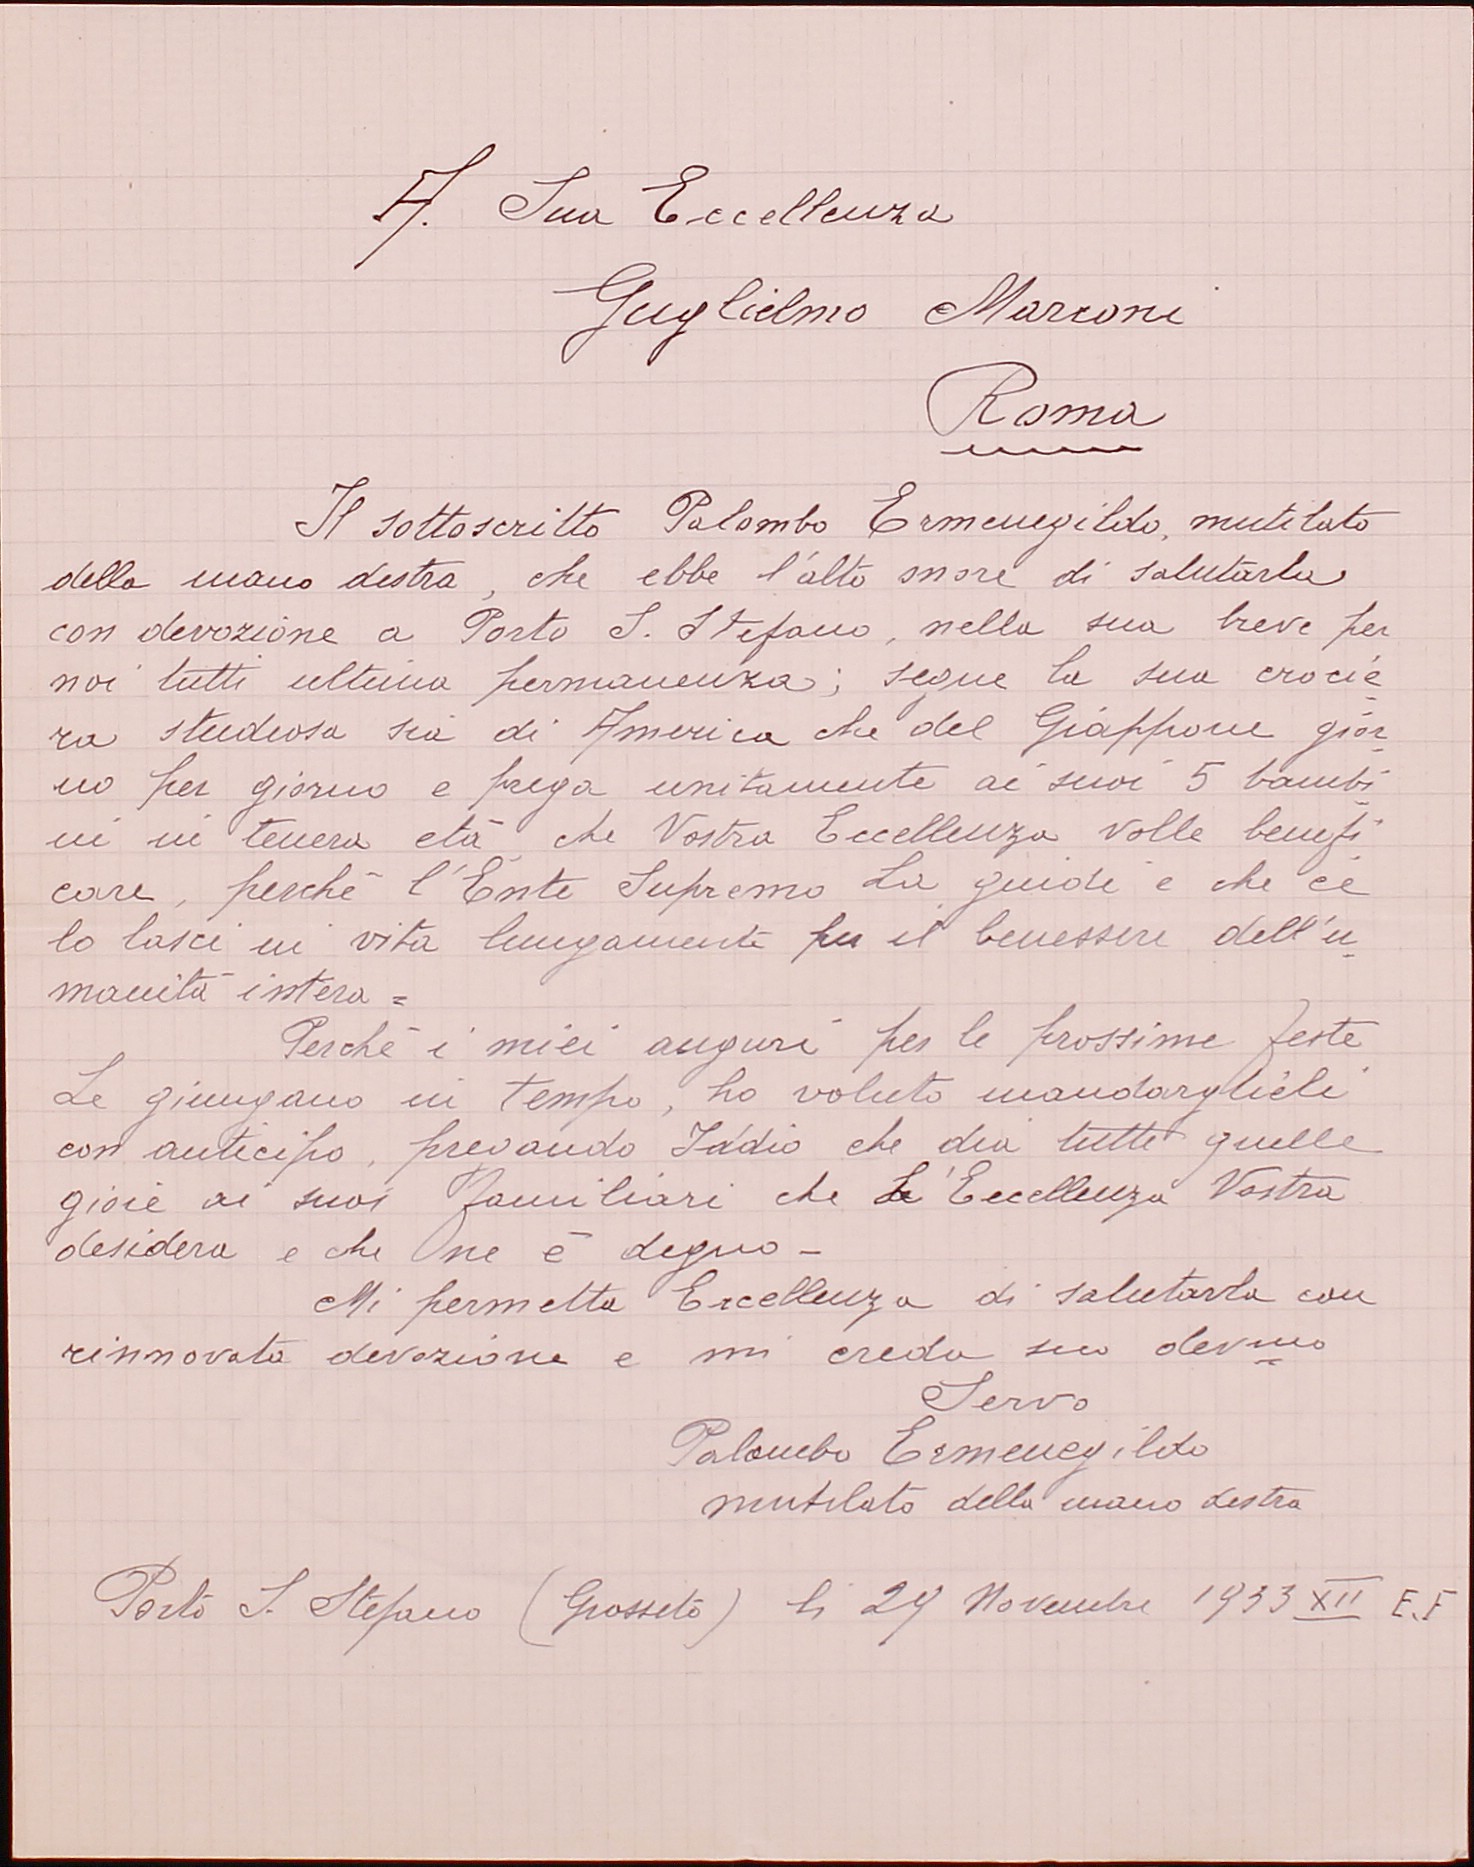 A. Sua Eccellenza
Guglielmo Marconi
Roma
Il sottoscritto Palombo Ermenegildo, mutilato
della mano destra, che ebbe l'alto onore di salutarla
con devozione a Porto S. Stefano, nella sua breve per
noi tutti ultima permanenza; segue la sua crocie-
ra studiosa sia di America che del Giappone gior-
no per giorno e prega unitamente ai suoi 5 bambi-
ni in tenera età che Vostra Eccellenza volle benefi-
care, perchè l'Ente Supremo La guidi e che ce
lo lasci in vita lungamente per il benessere dell'u-
manità intera =
Perchè i miei auguri per le prossime feste
Le giungano in tempo, ho voluto mandarglieli
con anticipo, pregando Iddio che dia tutte quelle
gioie ai suoi familiari che L'Eccellenza Vostra
desidera e che ne è degno -
Mi permetta Eccellenza di salutarla con
rinnovata devozione e mi creda suo devmo
Servo
Palombo Ermenegildo
mutilato della mano destra
Porto S. Stefano (Grosseto) li 29 Novembre 1933 XII E.F